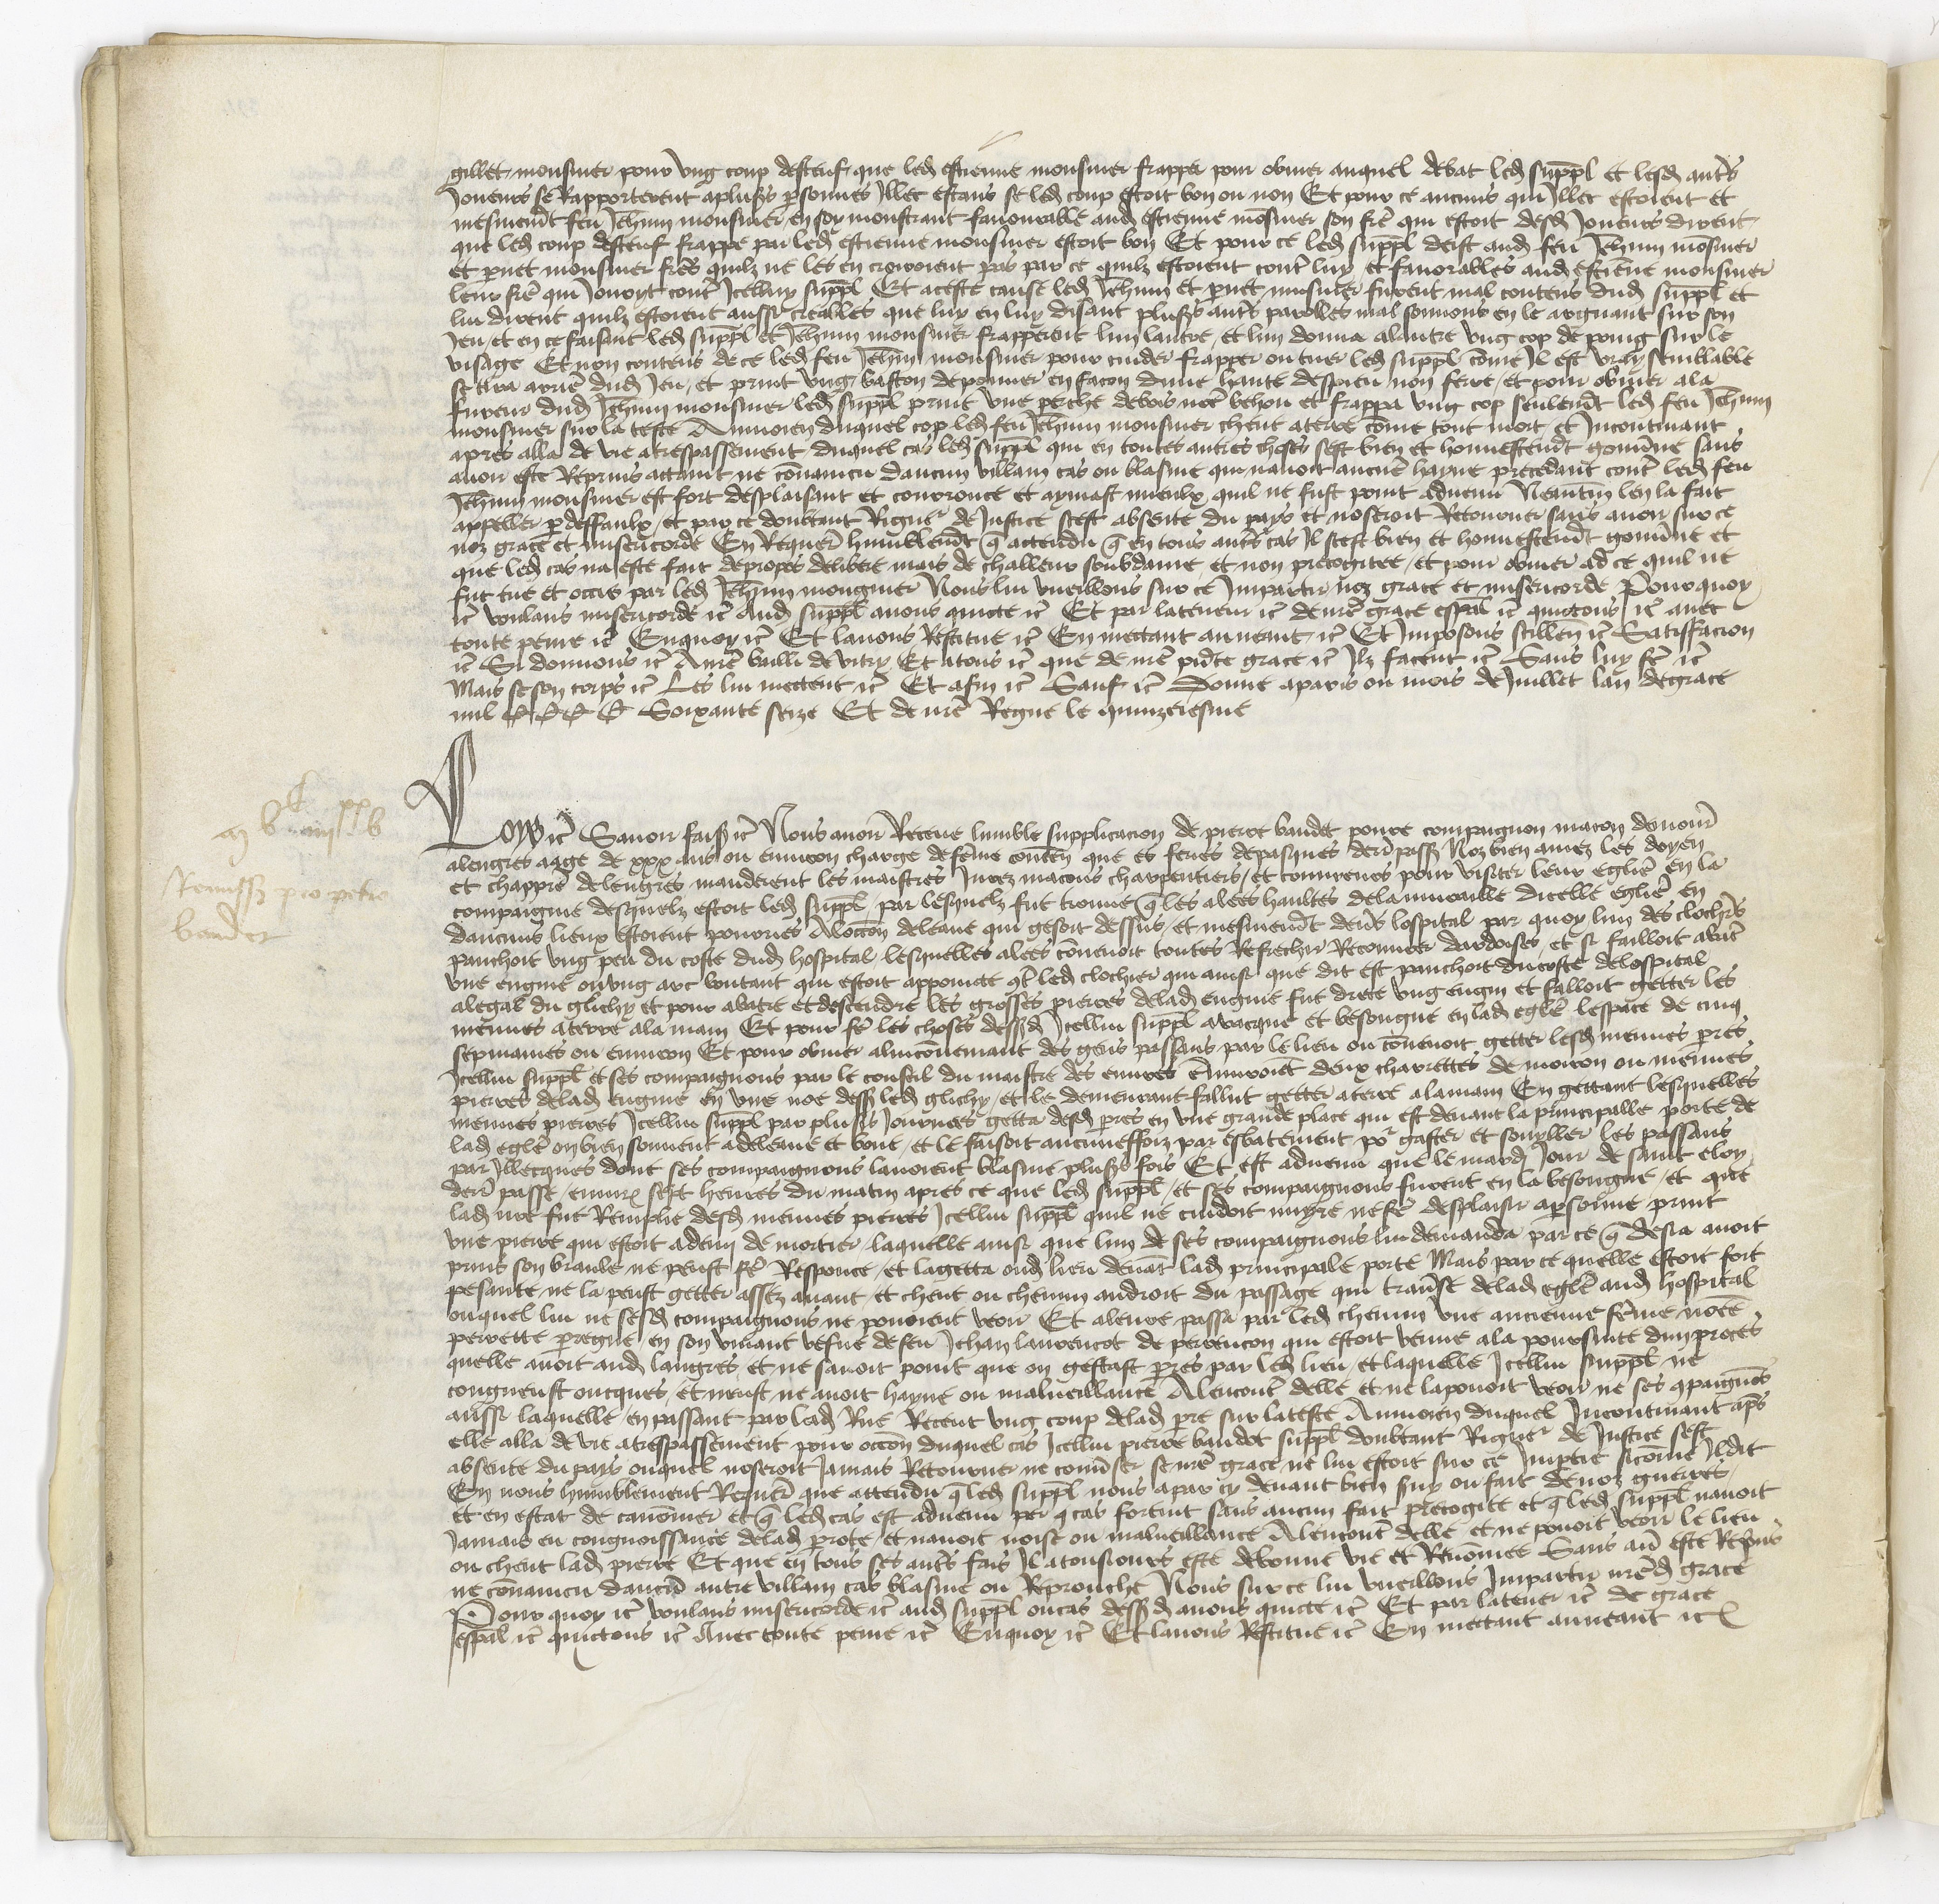 gillet monsiner pour ung coup desteuf que led estienne monsiner frappa pour obvier auquel debat led suppl et lesd autrs
Joueurs se Rapporterent a plus's personnes Illec estans se led coup estoit bon ou non Et pour ce aucuns qui Illec estoient et
mesmement feu Jehan monsiner en soy monstrant favourable aud estienne monsiner son frē qui estoit desd Joueurs dirent
que led coup desteuf frappe par led estienne monsiner estoit bon Et pour ce led suppl deist aud feu Jehan mosiner
et monsiner frēs quilz ne les en croiroient pas par ce quilz estoient contr luy et favorables aud estiēne monsiner
leur frē qui Jouoyt contr Icelluy suppl Et a ceste cause led Jehan et monsiner furent mal contens dud suppl et
lui dirent quilz estoient aussi creables que luy en luy disant plus's autrs parolles mal sonnans en le arguant sur son
Jeu et en ce faisant led suppl et Jehan monsiner frapperent lun lautre et lun donna a lautre ung cop de poing sur le
visage Et non contens de ce led feu Jehan monsiner pour cuider frapper ou tuer led suppl cōme Il est vray semblable
se tira arriē dud Jeu et print ung baston de pommier en facon dune hante despieu non ferre et pour obvier a la
fureur dud Jehan monsiner led suppl print une perche de bois et frappa ung cop seulemt led feu Jehan
monsiner sur la teste Au moien duquel cop led feu Jehan monsiner cheut a terre cōme tout mort et Incontinant
apres alla de vie a trespassement duquel cas led suppl qui en toutes autres choses sest bien et honnestemt gouvne sans
avoir este Reprins attaint ne cōvaincu daucun villain cas ou blasme qui navoit aucune hayne precedant contr led feu
Jehan monsiner est fort desplaisant et courrouce et aymast mieulx quil ne fust point advenu Neantm len la fait
appeller p deffaulx et par ce doubtant Riguer de Justice sest absente du pays et noseroit Retourner sans avoir sur ce
noz grace et misericorde En Requerr humblemt q actendu q en tous autrs cas Il sest bien et honnestemt gouvne et
que led cas na este fait de propos delibere mais de challeur soubdaine et non precogitee et pour obvier ad ce quil ne
fut tue et occis par led Jehan mongnier Nous lui vueillons sur ce Impartir noz grace et misericorde Pourquoy
etc voulans misericorde etc Aud suppl avons quicte etc Et par la teneur etc de nre grace espal etc quictons etc avec
toute peine etc En quoy etc Et lavons Restitue etc En mectant au neant etc Et Imposons scillen etc Satisfacion
etc Si donnons etc A nre bailli de vitry Et a tous etc que de nre pnte grace etc Ilz facent etc Sans luy fe etc
Mais se son corps etc Les lui mectent etc Et afin etc Sauf etc Donne a paris ou mois de Juillet lan de grace
mil CCCC Soixante seize Et de nre Regne le quinzeiesme
Remiss pro petro
baudet
LOYS etc Savoir fais etc Nous avoir Receue lumble supplicacion de pierre baudet povre compaignon macon demour
a lengres aage de xxx ans ou environ charge de fēme conten que es feries de pasques deri pass Noz bien amez les doyen
et chappre de lengres manderent les maistres Jurez macons charpentiers et couvreurs pour visiter leur eglise en la
compaignie desquelz estoit led suppl par lesquelz fut trouve q les alees haultes de la muraille dicelle eglise en
daucuns lieux estoient pourries A loccōn de leaue qui gesoit dessus et mesmemt devs lospital par quoy lun des clochrs
panchoit ung peu du coste dud hospital lesquelles alees cōvenoit toutes Refrechir Recouvrer dardoises et si failloit abatr
une engine ou ung arc boutant qui estoit appointe led clochier qui ainsi que dit est panchoit du coste de lospital
a legal du glichy et pour abatre et descendre les grosses pierres delad engine fut drece ung engin et falloit getter les
menues a terre a la main Et pour fe les choses dessd Icellui suppl a vacque et besongne en lad egle lespace de cinq
sepmaines ou environ Et pour obvier a linconvenient des gens passans par le lieu ou cōvenoit getter lesd menues prēs
Icellui suppl et ses compaignons par le conseil du maistre des euvres deux charrettes de moiron ou menues
pierres delad engine en une noe dess led glichy et le demeurant fallut getter a terre a la main En gettant lesquelles
menues pierres Icellui suppl par plus's Journees getta desd prēs en une grande place qui est devant la principalle porte de
lad egle ou bien souvent a de leaue et boue et le faisoit aucuneffoiz par esbatement pour gaster et souyller les passans
par Illecques dont ses compaignons lavoient blasme plus's fois Et est advenu que le mardi Jour de saint eloy
deri passe environ sept heures du matin apres ce que led suppl et ses compaignons furent en la besongne et que
lad noe fut Remplie desd menues pierres Icellui suppl quil ne cuidoit nuyre ne fe desplaisir a psonne print
une pierre qui estoit a demi de mortier laquelle ainsi que lun de ses compaignons lui demanda par ce q desia avoit
prins son branle ne peust fe Responce et la getta oud lieu devant lad principale porte Mais par ce quelle estoit fort
pesante ne la peust getter assez avant et cheut ou chemin androit du passage qui travse delad egle aud hospital
ouquel lui ne sesd compaignons ne povoient veoir Et a leure passa par led chemin une ancienne fēme nōee
perrette peregne en son vivant vefue de feu Jehan laurencot de perrencon qui estoit venue a la poursuite dun proces
quelle avoit aud langres et ne savoit point que on gestast prēs par led lieu et laquelle Icellui suppl ne
congneust oncques et neust ne avoit hayne ou malveillance A lencontr delle et ne la povoit veoir ne ses compaignōs
aussi laquelle en passant par lad Rue Receut ung coup delad prē sur la teste Au moien duquel Incontinant aps
elle alla de vie a trespassement pour occōn duquel cas Icellui pierre baudet suppl doubtant Riguer de Justice sest
absente du pays ouquel noseroit Jamais Retourner ne convser se nre grace ne lui estoit sur ce Imptie sicōme Il dit
En nous humblement Requer que attendu q led suppl nous a par cy devant bien suy ou fait de noz guerres
et en estat de canonnier et q led cas est advenu per cas fortuit sans aucun fait precogite et q led suppl navoit
Jamais eu congnoissance delad perrote et navoit noise ou malveillance A lencontr delle et ne povoit veoir le lieu
ou cheut lad pierre Et que en tous ses autrs fais Il a tousiours este de bonne vie et Renōmee Sans avr este Reprins
ne cōvaincu daucū autre villain cas blasme ou Reprouche Nous sur ce lui vueillons Impartir nred grace
Pour quoy etc voulans misericorde etc aud suppl ou cas dessd avons quicte etc Et par la tener etc de grace
espal etc quictons etc Avec toute peine etc En quoy etc Et lavons Restitue etc En mectant au neant etc